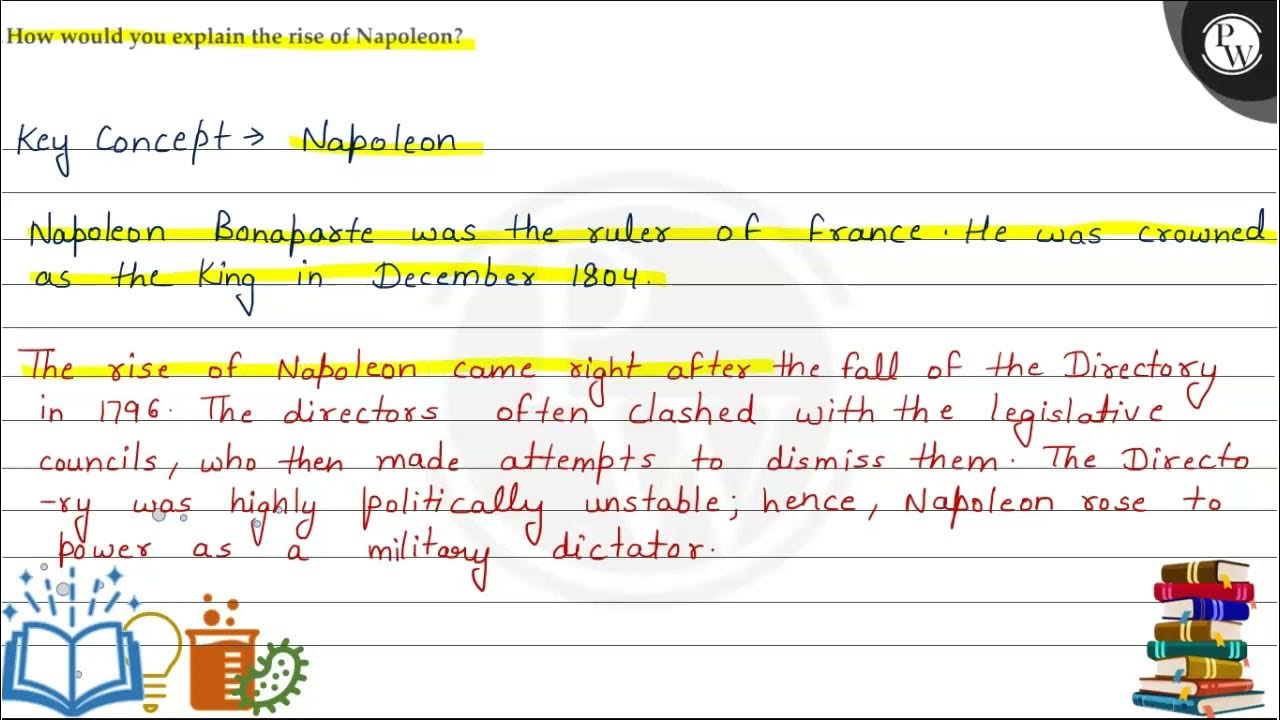 How would you explain the rise of Napoleon?
PW
Key Concept → Napoleon
Napoleon Bonaparte was the ruler of france. He was crowned
as the King in December 1804.
The rise of Napoleon came right after the fall of the Directory
in 1796. The directors often clashed with the legislative
councils, who then made attempts to dismiss them. The Directo
-ry was highly politically unstable; hence, Napoleon rose to
power as a military dictator.